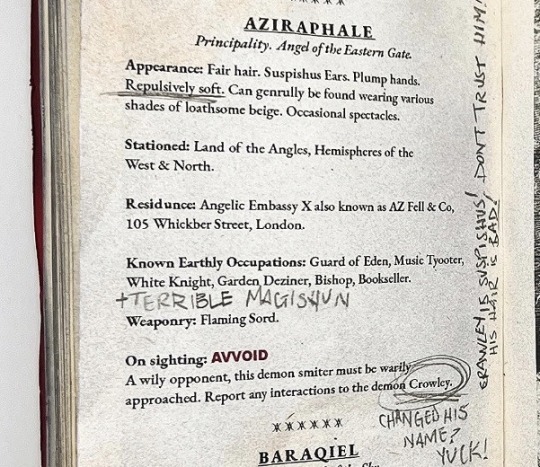 AZIRAPHALE
Principality. Angel of the Eastern Gate.
Appearance: Fair hair. Suspishus Ears. Plump hands.
Repulsively soft. Can genrully be found wearing various
shades of loathsome beige. Occasional spectacles.
Stationed: Land of the Angles, Hemispheres of the
West & North.
Residunce: Angelic Embassy X also known as AZ Fell & Co,
105 Whickber Street, London.
Known Earthly Occupations: Guard of Eden, Music Tyooter,
White Knight, Garden Deziner, Bishop, Bookseller.
+TERRIBLE MAGISHUN
Weaponry: Flaming Sord.
On sighting: AVVOID
A wily opponent, this demon smiter must be warily
approached. Report any interactions to the demon Crowley.
CHANGED HIS
NAME?
YUCK!
CRAWLEY IS SUSPISHUS! DONT TRUST HIM!
HIS HAIR IS BAD!
××××××
BARAQIEL